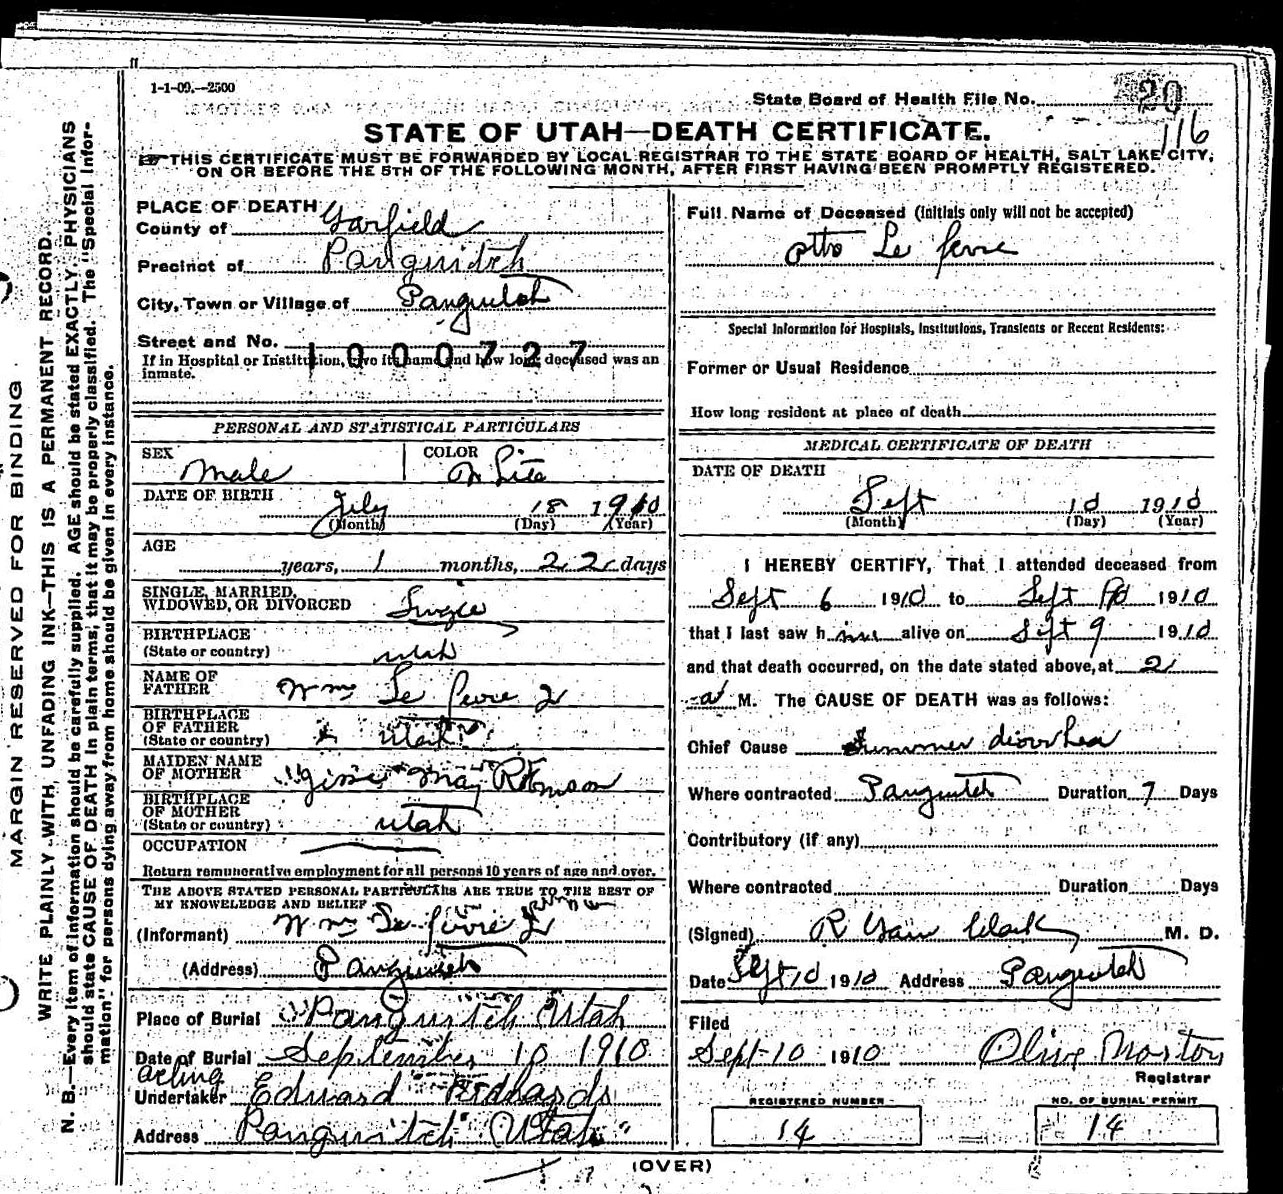 1-1-09.—2500
State Board of Health File No. 20
116
STATE OF UTAH—DEATH CERTIFICATE.
THIS CERTIFICATE MUST BE FORWARDED BY LOCAL REGISTRAR TO THE STATE BOARD OF HEALTH, SALT LAKE CITY,
ON OR BEFORE THE 5TH OF THE FOLLOWING MONTH, AFTER FIRST HAVING BEEN PROMPTLY REGISTERED.
MARGIN RESERVED FOR BINDING
WRITE PLAINLY WITH UNFADING INK—THIS IS A PERMANENT RECORD.
N. B.—Every item of information should be carefully supplied. AGE should be stated EXACTLY. PHYSICIANS
should state CAUSE OF DEATH in plain terms, that it may be properly classified. The "Special Infor-
mation" for persons dying away from home should be given in every instance.
PLACE OF DEATH
County of Garfield
Precinct of Panguitch
City, Town or Village of Panguitch
Street and No.
1000727
If in Hospital or Institution, give its name and how long deceased was an
inmate.
PERSONAL AND STATISTICAL PARTICULARS
SEX Male COLOR White
DATE OF BIRTH July 18 1910
(Month) (Day) (Year)
AGE
years, 1 months, 22 days
SINGLE, MARRIED,
WIDOWED, OR DIVORCED Single
BIRTHPLACE
(State or country) Utah
NAME OF
FATHER Wm Le fevre 2
BIRTHPLACE
OF FATHER
(State or country) Utah
MAIDEN NAME
OF MOTHER May Robinson
BIRTHPLACE
OF MOTHER
(State or country) Utah
OCCUPATION
Return remunerative employment for all persons 10 years of age and over.
THE ABOVE STATED PERSONAL PARTICULARS ARE TRUE TO THE BEST OF
MY KNOWLEDGE AND BELIEF
(Informant) Wm Le fevre
(Address) Panguitch
Place of Burial Panguitch Utah
Date of Burial September 10 1910
acting
Undertaker Edward
Address Panguitch Utah
Full Name of Deceased (Initials only will not be accepted)
Otto Le fevre
Special Information for Hospitals, Institutions, Transients or Recent Residents:
Former or Usual Residence
How long resident at place of death
MEDICAL CERTIFICATE OF DEATH
DATE OF DEATH
Sept 10 1910
(Month) (Day) (Year)
I HEREBY CERTIFY, That I attended deceased from
Sept 6 1910 to Sept 10 1910
that I last saw him alive on Sept 9 1910
and that death occurred, on the date stated above, at 2
a M. The CAUSE OF DEATH was as follows:
Chief Cause Summer diorrhea
Where contracted Panguitch Duration 7 Days
Contributory (if any)
Where contracted Duration Days
(Signed) R Clark M. D.
Date Sept 10 1910 Address Panguitch
Filed
Sept 10 1910 Olive Norton
Registrar
REGISTERED NUMBER
14
NO. OF BURIAL PERMIT
14
(OVER)